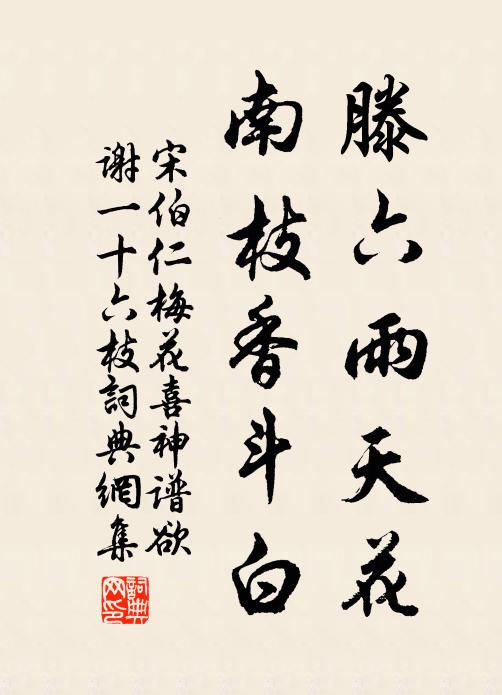 滕六雨天花
南枝香斗白
宋伯仁梅花喜神谱欲
谢一十六枝詞典網集
詞典網印